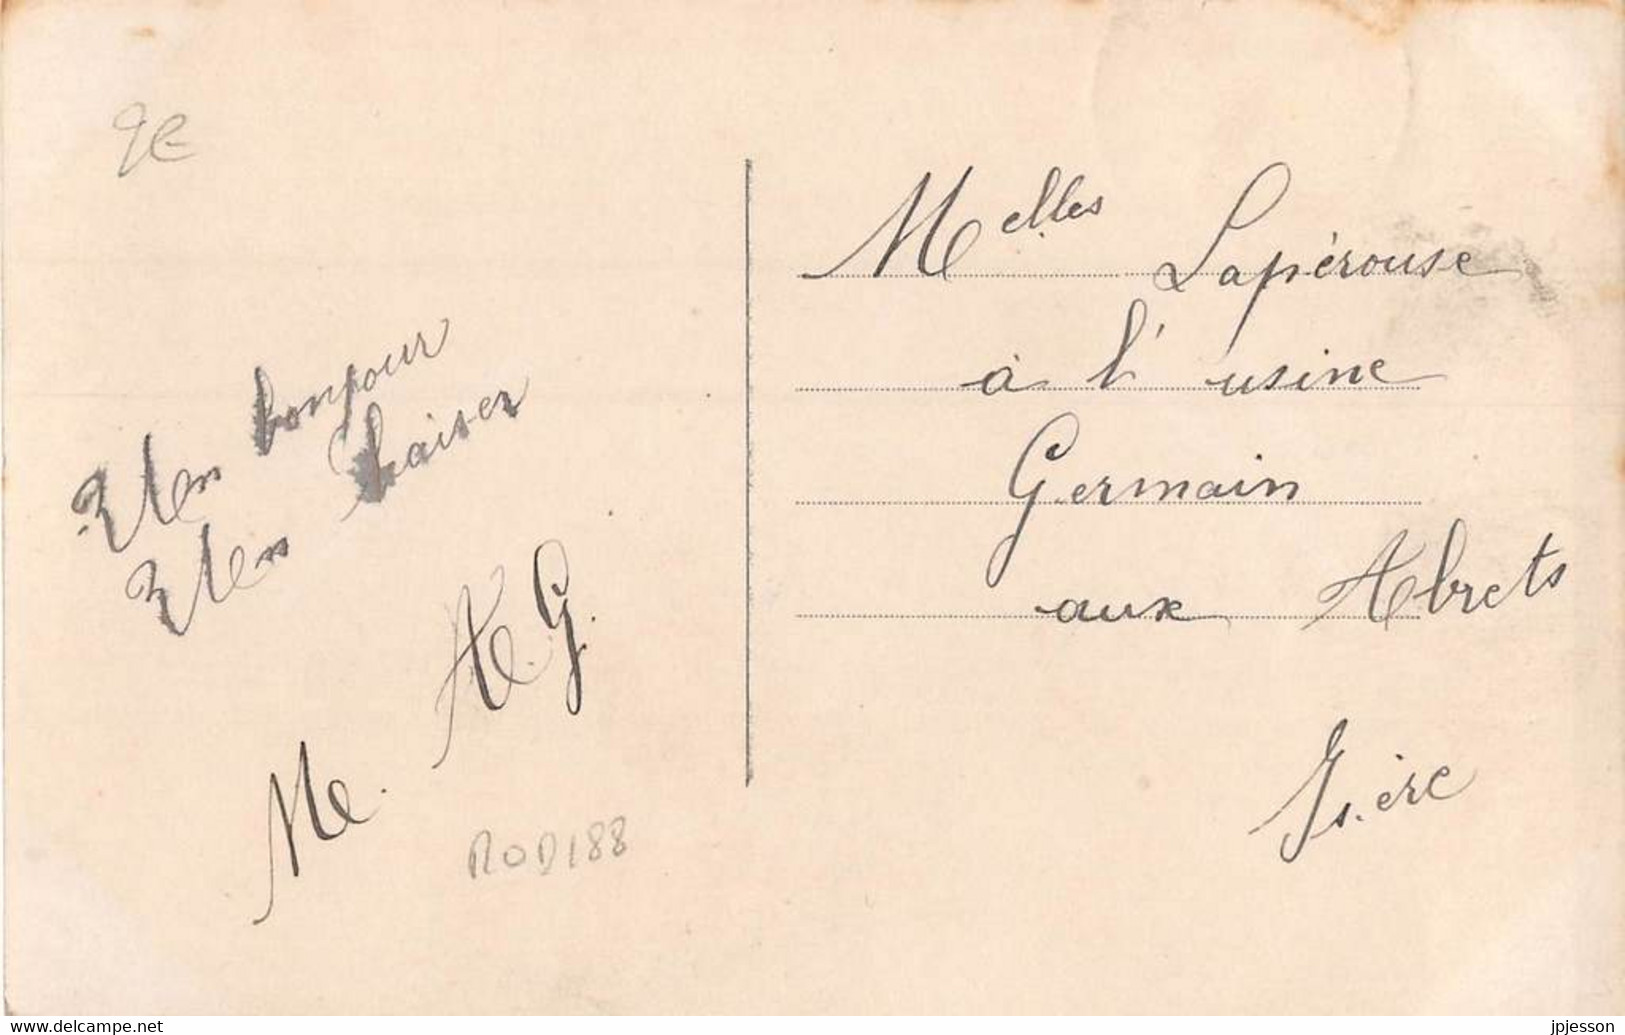 9€
Un bonjour
Un baiser
M. A. G.
ROD188
Melles Lapérouse
à l'usine
Germain
aux Abrets
Isère
www.delcampe.net
jpjesson